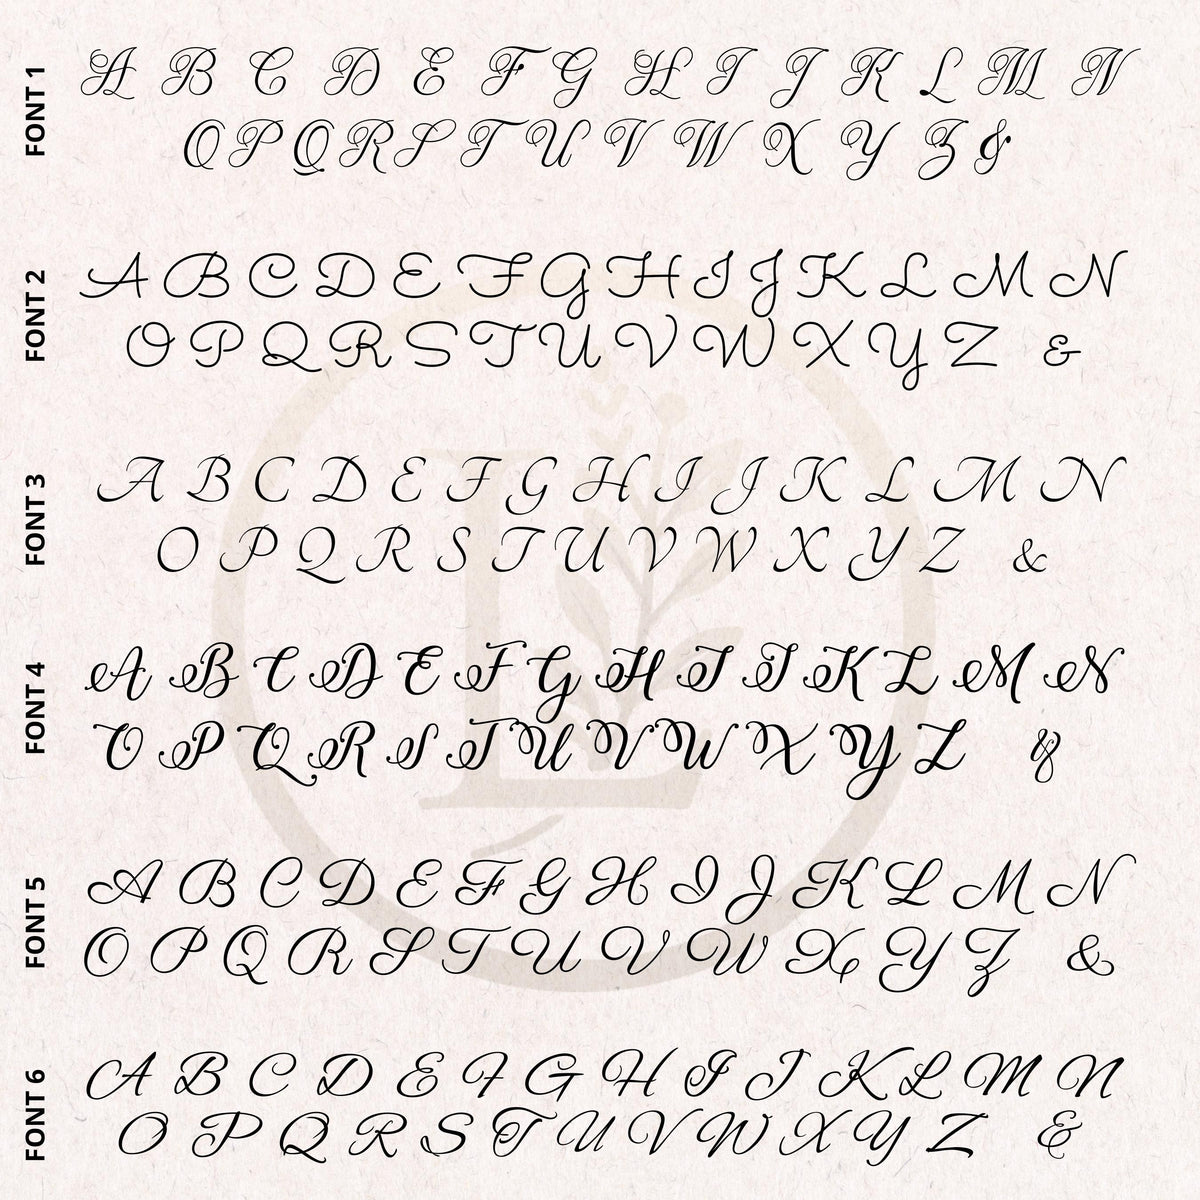 FONT 1
A B C D E F G H I J K L M N
O P Q R S T U V W X Y Z &
FONT 2
A B C D E F G H I J K L M N
O P Q R S T U V W X Y Z &
FONT 3
A B C D E F G H I J K L M N
O P Q R S T U V W X Y Z &
FONT 4
A B C D E F G H I J K L M N
O P Q R S T U V W X Y Z &
FONT 5
A B C D E F G H I J K L M N
O P Q R S T U V W X Y Z &
FONT 6
A B C D E F G H I J K L M N
O P Q R S T U V W X Y Z &
L